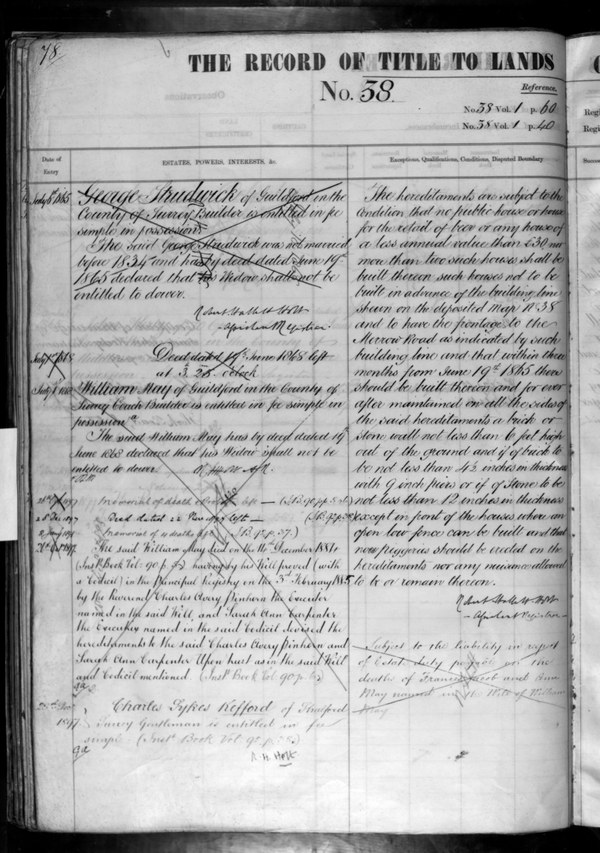 78
THE RECORD OF TITLE TO LANDS
No. 38.
Reference.
No. 38 Vol. 1 p. 60
No. 38 Vol. 1 p. 40
Date of Entry
ESTATES, POWERS, INTERESTS, &c.
July 8th 1865
George Strudwick of Guildford in the
County of Surrey Builder is entitled in fee
simple in possession
The said George Strudwick was not married
before 1834 and has by deed dated June 19th
1865 declared that his Widow shall not be
entitled to dower.
Robert Hallett Holt
Assistant Registrar
Deed dated 19th June 1868 left
at 3. 28. o'clock
William May of Guildford in the County of
Surrey Coach Builder is entitled in fee simple in
possession
The said William May has by deed dated 19th
June 1868 declared that his Widow shall not be
entitled to dower
Memorial of death of left
Deed dated 22 left
Memorial of 4 deaths
The said William May died on the 16th December 1884
(Inst. Book Vol: 90 p. ) having by his Will proved (with
a Codicil) in the Principal Registry on the 3rd February 1885
by the Reverend Charles Avery Pinhorn the Executor
named in the said Will and Sarah Ann Carpenter
the Executrix named in the said Codicil devised the
hereditaments to the said Charles Avery Pinhorn and
Sarah Ann Carpenter Upon trust as in the said Will
and Codicil mentioned (Inst. Book Vol 90 p. )
1897
Charles Sykes Kefford of
Surrey Gentleman is entitled in fee
simple (Inst. Book Vol: 90 p. )
R. H. Holt
Exceptions, Qualifications, Conditions, Disputed Boundary
The hereditaments are subject to the
Condition that no public house or house
for the retail of beer or any house of
a less annual value than £30 nor
more than two such houses shall be
built thereon such houses not to be
built in advance of the building line
shewn on the deposited Map No. 38
and to have the frontage to the
Merrow Road as indicated by such
building line and that within three
months from June 19th 1865 there
should be built thereon and for ever
after maintained on all the sides of
the said hereditaments a brick or
stone wall not less than 6 feet high
out of the ground and if of brick to
be not less than 4½ inches in thickness
with 9 inch piers or if of Stone to be
not less than 12 inches in thickness
except in front of the houses where an
open low fence can be built and that
no piggeries should be erected on the
hereditaments nor any nuisance allowed
to be or remain thereon.
Robert Hallett Holt
Assistant Registrar
Subject to the liability in respect
of Estate duty payable on the
deaths of Francis Jacob and Ann
May named in the Will of William
May